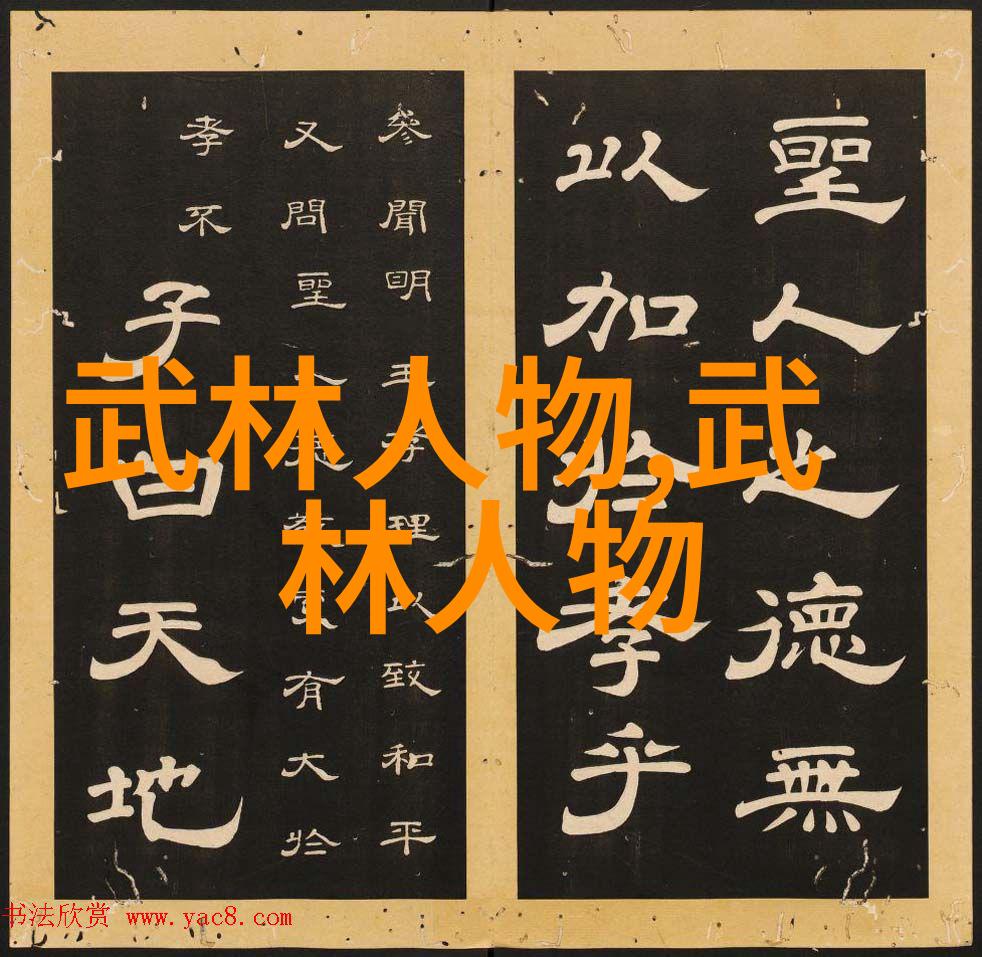 武林人物,武
林人物
聖人之德無
以加於孝乎
參聞明王孝理以致和平
又問聖人有大於
孝不
子曰天地
书法欣赏 www.yac8.com